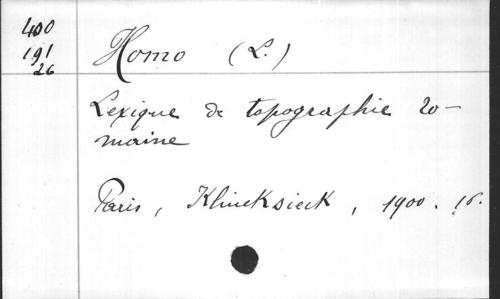 400
191
26
Homo (L.)
Lexique de topographie ro-
maine
Paris, Klincksieck, 1900. 16.